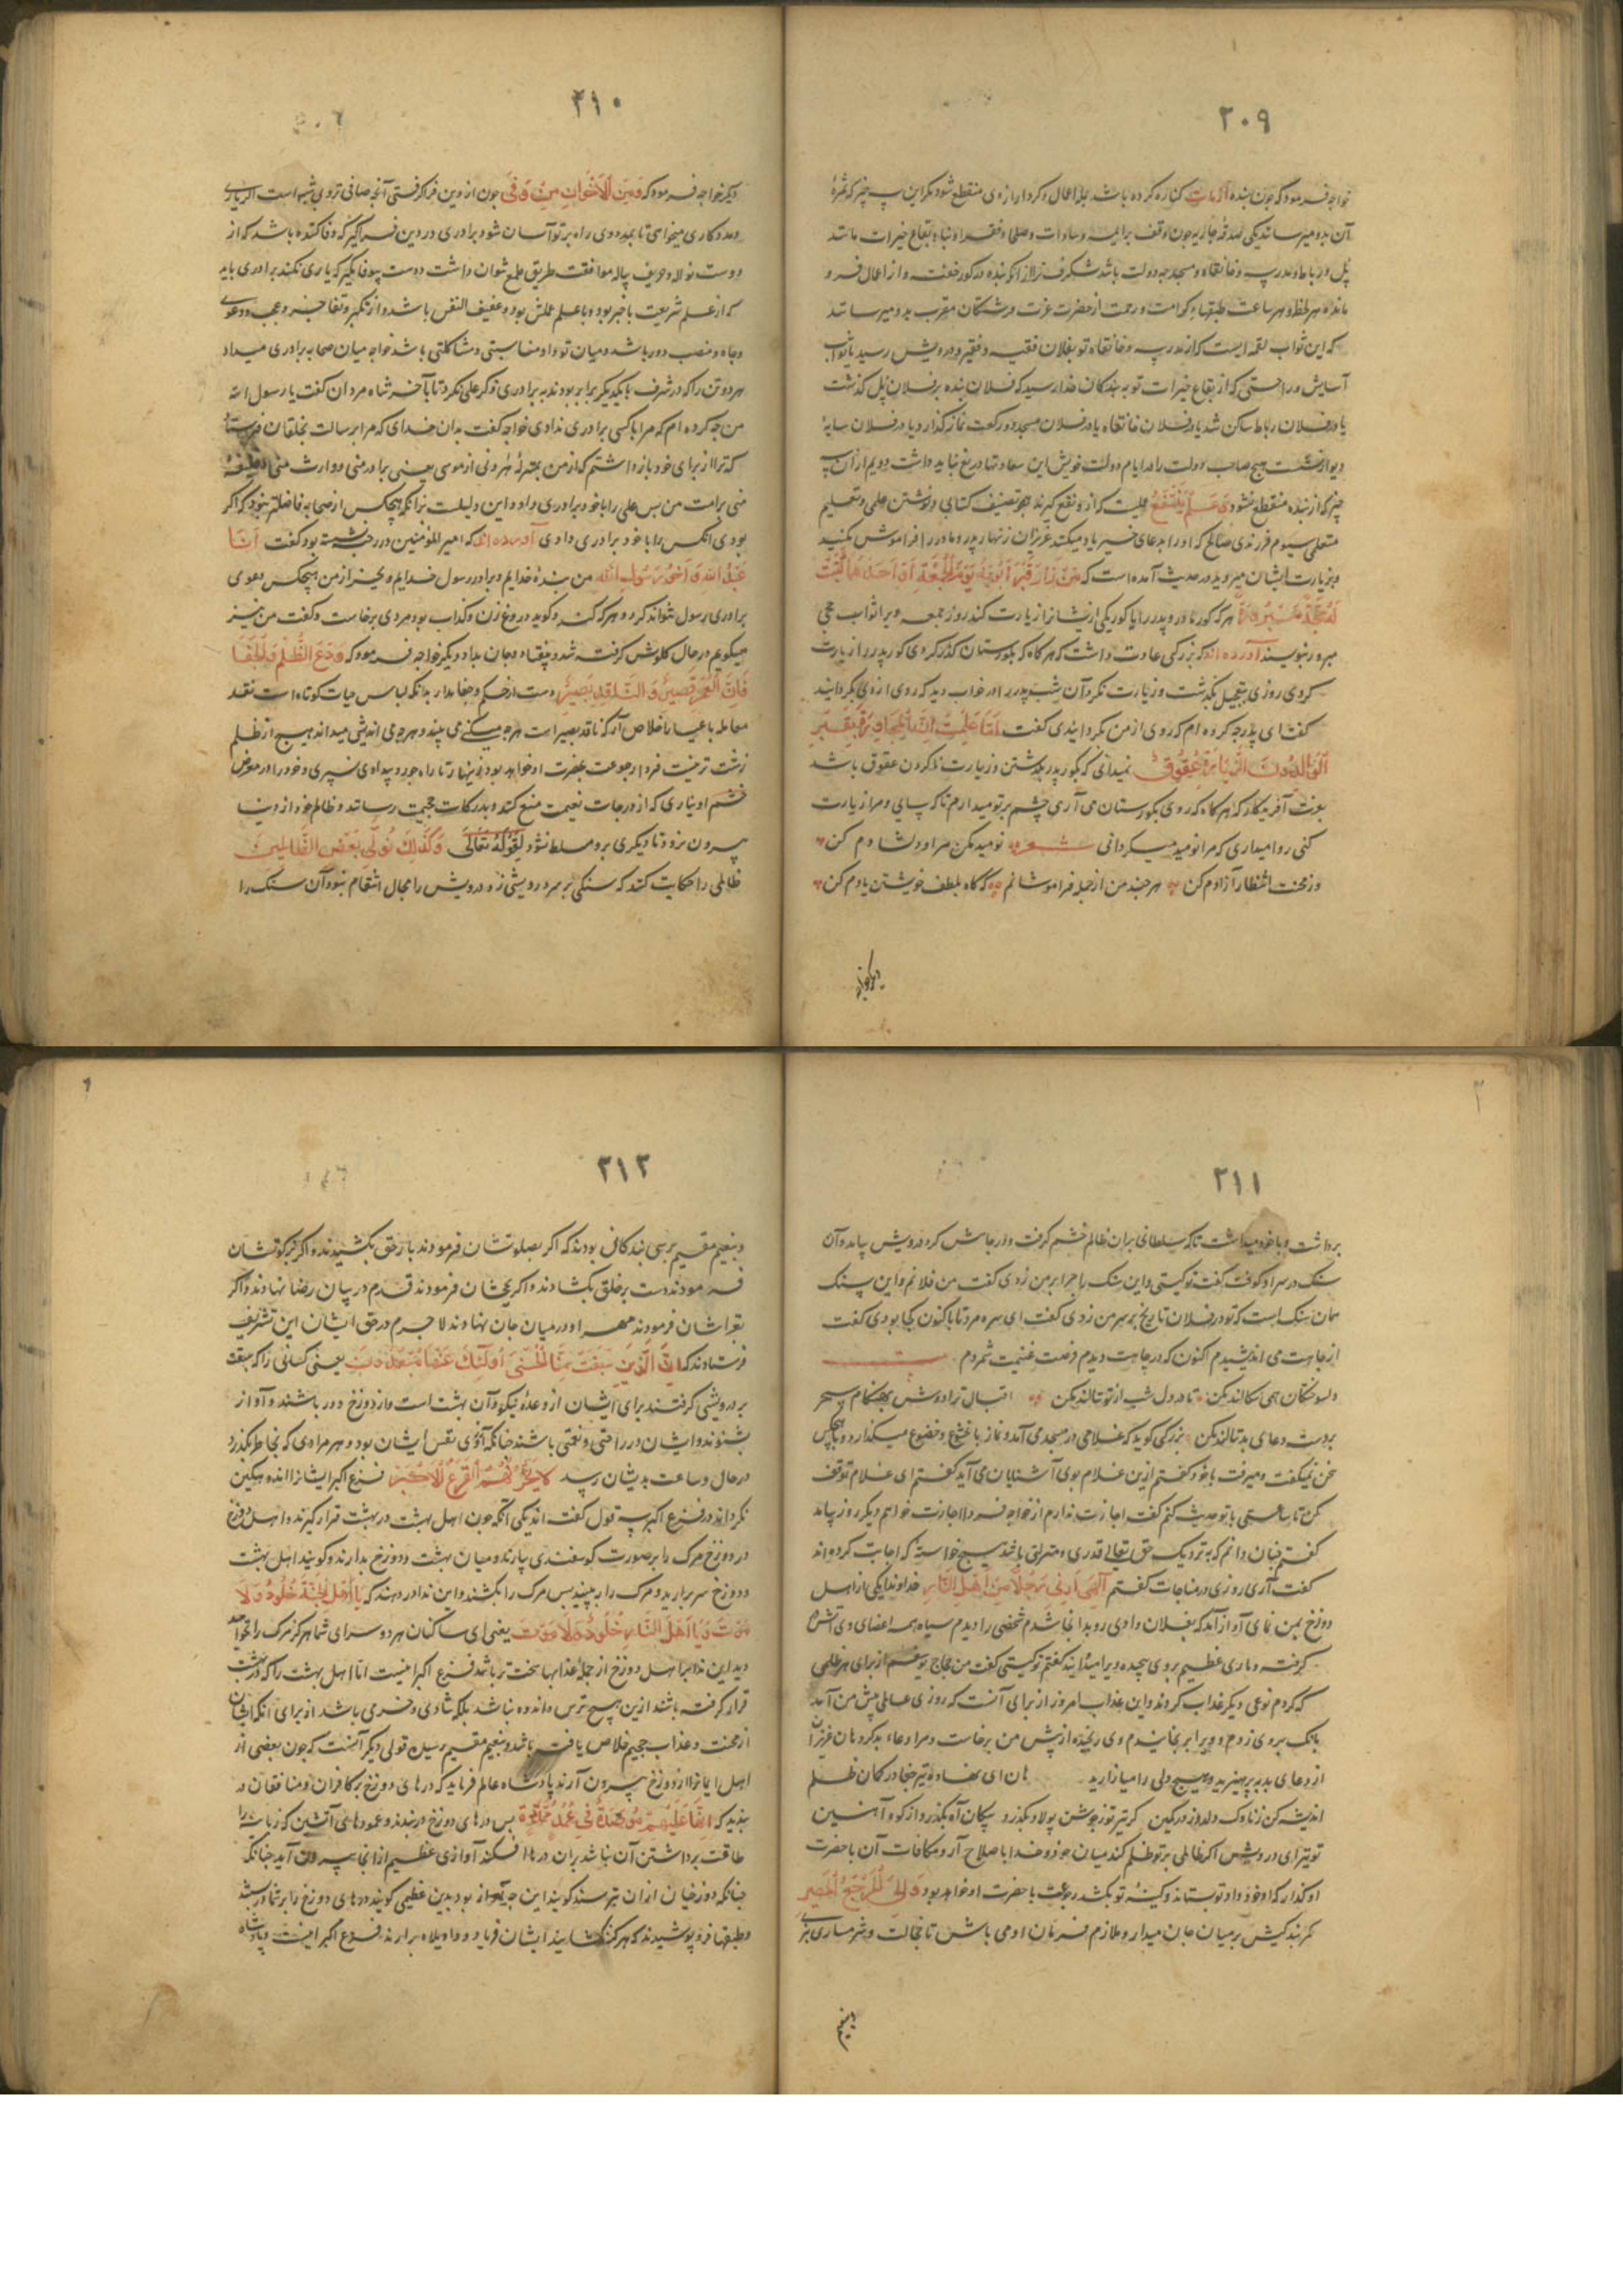 ۲۰۹
خواجه فرمود که چون بنده از مات کناره کرده باشد بدان اعمال و کردار از وی منقطع شود مگر این سه چیز که ثمرهٔ
آن بدو میرساند یکی صدقهٔ جاریه چون وقف بر ایمه و سادات و صلحا و فقرا و بناء بقاع خیرات مانند
پل و رباط و مدرسه و خانقاه و مسجد چه دولت باشد شکرف تر از انکه بنده در کور خفته و از اعمال فرو
مانده هر لحظه و هر ساعت طبقهاء کرامت و رحمت از حضرت عزت فرشتکان مقرب بدو میرسانند
که این ثواب لقمه ایست که از مدرسه و خانقاه تو بفلان فقیه و فقیر و درویش رسید یا ثواب
آسایش و راحتی که از بقاع خیرات تو به بندکان خدا رسید که فلان بنده بر فلان پل کذشت
یا در فلان رباط ساکن شد یا در فلان خانقاه یا در فلان مسجد دو رکعت نماز کذارد یا در فلان سایهٔ
دیوار نشست هیچ صاحب دولت را در ایام دولت خویش این سعادتها دریغ نباید داشت دویم از آن سه
چیز که از بنده منقطع نشود علم ینتفع علمیست که ازو نفع کیرند چو تصنیف کتابی و نوشتن علمی و تعلیم
متعلمی سیوم فرزندی صالح که او را بدعای خیر یاد میکند عزیزان زنهار پدر و مادر را فراموش نکنید
و بزیارت ایشان میروید در حدیث آمده است که من زار قبر ابویه یوم الجمعة او احدهما کتبت
له حجة مبرورة هر که کور مادر و پدر را یا کور یکی ازیشان را زیارت کند روز جمعه ویرا ثواب حجی
مبرور بنویسند آورده اند که بزرکی عادت داشت که هر کاه که بکورستان کذر کردی کور پدر را زیارت
کردی روزی بتعجیل بکذشت و زیارت نکرد آن شب پدر را در خواب دید که روی از وی بکردانید
کفت ای پدر چه کرده ام که روی از من بکردانیدی کفت اما علمت ان المجاوزة بقبر
الوالدین دون الزیارة عقوق نمیدانی که بکور پدر بکذشتن و زیارت ناکردن عقوق باشد
بعزت آفریدکار که هر کاه که روی بکورستان می آری چشم بر تو میدارم تا که بیایی و مرا زیارت
کنی روا میداری که مرا نومید میکردانی شعر نومید مکن مرا و دلشادم کن
وز محنت انتظار آزادم کن هر چند من از جمله فراموشانم که کاه بلطف خویشتن یادم کن
دیکر خواجه
۲۱۰
دیکر خواجه فرمود که و من الاخوان من وفی چون از دین فرا کرفتی آنچه صافی تر و بی شبه است اکر یاری
و مددکاری میخواهی تا بمدد وی راه بر تو آسان شود برادری در دین فرا کیر که وفا کننده باشد که از
دوست نواله و حریف پیاله موافقت طریق طمع نتوان داشت دوست بیوفا مکیر که یاری نکند برادری باید
که از علم شریعت با خبر بود و با علم عملش بود و عفیف النفس باشد و از تکبر و تفاخر و عجب و دعوی
و جاه و منصب دور باشد و میان تو و او مناسبتی و مشاکلتی باشد خواجه میان صحابه برادری میداد
هر دو تن را که در شرف با یکدیکر برابر بودند به برادری ذکر علی نکرد تا بآخر شاه مردان کفت یا رسول الله
من چه کرده ام که مرا با کسی برادری ندادی خواجه کفت بدان خدای که مرا برسالت بخلقان فرستاد
که ترا از برای خود باز داشتم که از من بمنزلهٔ هرونی از موسی یعنی برادر منی و وارث منی و خلیفهٔ
منی بر امت من پس علی را با خود برادری داد و این دلیلست بر انکه هیچکس از صحابه فاضلتر نبود که اکر
بودی انکس را با خود برادری دادی آورده اند که امیر المؤمنین در رحبه نشسته بود کفت انا
عبد الله و اخو رسول الله من بندهٔ خدایم و برادر رسول خدایم و بجز از من هیچکس دعوی
برادری رسول نتواند کرد و هر که کند و کوید دروغ زن و کذاب بود مردی برخاست و کفت من نیز
میکویم در حال کلوش کرفته شد و بیفتاد و جان بداد دیکر خواجه فرمود که ودع الظلم و الجفا
فان العمر قصیر و الناقد بصیر دست از ستم و جفا بدار بدانکه لباس حیات کوتاه است نقد
معامله با عیار اخلاص آر که ناقد بصیر است هر چه میکنی می بیند و هر چه می اندیشی میداند هیچ از ظلم
زشت تر نیست فردا رجوعت بحضرت او خواهد بود زینهار تا راه جور و بیدادی نسپری و خود را در معرض
خشم او نیاری که از درجات نعیمت منع کند و بدرکات جحیمت رساند و ظالم خود از دنیا
بیرون نرود تا دیکری برو مسلط نشود لقوله تعالی و کذلک نولی بعض الظالمین
ظالمی را حکایت کنند که سنکی بر سر درویشی زد درویش را مجال انتقام نبود آن سنک را
۲۱۱
برداشت و با خود میداشت تا که سلطانی بران ظالم خشم کرفت و در چاهش کرد درویش بیامد و آن
سنک در سر او کوفت کفت تو کیستی و این سنک را چرا بر من زدی کفت من فلانم و این سنک
همان سنک است که تو در فلان تاریخ بر سر من زدی کفت ای سره مرد تا باکنون کجا بودی کفت
از جاهت می اندیشیدم اکنون که در چاهت دیدم فرصت غنیمت شمردم
دلسوختکان همی سکالند مکن تا در دل شب از تو نالند مکن اقبال ترا دوش بهنکام سحر
بر دست دعای بد بمالند مکن بزرکی کوید که غلامی در مسجد می آمد و نماز با خشوع و خضوع میکذارد و با هیچکس
سخن نمیکفت و میرفت با خود کفتم ازین غلام بوی آشنایان می آید کفتم ای غلام توقف
کن تا ساعتی با تو حدیث کنم کفت اجازت ندارم از خواجه فردا اجازت خواهم دیکر روز بیامد
کفتم چنان دانم که به نزدیک حق تعالی قدری و منزلتی باشد هیچ خواسته که اجابت کرده اند
کفت آری روزی در مناجات کفتم الهی ارنی رجلا من اهل النار خداوندا یکی از اهل
دوزخ بمن نمای آواز آمد که بفلان وادی رو بدانجا شدم شخصی را دیدم سیاه همه اعضای وی آتش
کرفته و ماری عظیم بروی پیچیده ویرا میکزایند کفتم تو کیستی کفت من حجاج یوسفم از برای هر ظلمی
که کردم نوعی دیکر عذاب کردند و این عذاب امروز از برای آنست که روزی عاملی پیش من آمد
بانک بروی زدم و ویرا برنجانیدم وی رنجیده از پیش من برخاست و مرا دعاء بد کرد هان عزیزان
از دعای بد بپرهیزید و هیچ دلی را میازارید هان ای نهاده تیر جفا در کمان ظلم
اندیشه کن ز ناوک دلدوز در کمین کر تیر تو ز جوشن پولاد بکذرد پیکان آه بکذرد از کوه آهنین
تو نیز ای درویش اکر ظالمی بر تو ظلم کند میان خود و خدا باصلاح آر و مکافات آن با حضرت
او کذار که او خود داد تو بستاند و کینهٔ تو بکشد رجوعت با حضرت او خواهد بود و الی المرجع المصیر
کمر بندکیش بر میان جان میدار و ملازم فرمان او می باش تا خجالت و شرمساری نبری
و نعیم
۲۱۲
و نعیم مقیم برسی بندکانی بودند که اکر بصلوتشان فرمودند بار حق بکشیدند و اکر بزکوتشان
فرمودند دست بر خلق بکشادند و اکر بحجشان فرمودند قدم در بیان رضا نهادند و اکر
بغزاشان فرمودند مهر او در میان جان نهادند لاجرم در حق ایشان این تشریف
فرستادند که ان الذین سبقت لهم منا الحسنی اولئک عنها مبعدون یعنی کسانی را که سبقت
بر درویشی کرفتند برای ایشان از وعدهٔ نیکو و آن بهشت است و از دوزخ دور باشند و آواز
نشنوند و ایشان در راحتی و نعمتی باشند چنانکه آرزوی نفس ایشان بود و هر مرادی که بخاطر بکذرد
در حال و ساعت بدیشان رسد لا یحزنهم الفزع الاکبر فزع اکبر ایشانرا اندوهکین
نکرداند در فزع اکبر سه قول کفته اند یکی آنکه چون اهل بهشت در بهشت قرار کیرند و اهل دوزخ
در دوزخ مرک را بر صورت کوسفندی بیارند و میان بهشت و دوزخ بدارند و کویند اهل بهشت
و دوزخ سر برارید و مرک را ببینید پس مرک را بکشند و این ندا در دهند که یا اهل الجنة خلود و لا
موت و یا اهل النار خلود و لا موت یعنی ای ساکنان هر دو سرای شما هرکز مرک را نخواهید
دید این ندا بر اهل دوزخ از جمله عذابها سخت تر باشد فزع اکبر اینست اما اهل بهشت را که در بهشت
قرار کرفته باشند ازین هیچ ترس و اندوه نباشد بلکه شادی و خرمی باشد از برای آنکه ایشان
از محنت و عذاب جحیم خلاص یافته باشند و بنعیم مقیم رسیده قولی دیکر آنست که چون بعضی از
اهل ایمانرا از دوزخ بیرون آرند پادشاه عالم فرماید که درهای دوزخ بر کافران و منافقان در
بندید که انها علیهم مؤصدة فی عمد ممددة پس درهای دوزخ در بندند و عمودهای آتشین که زبانیه را
طاقت برداشتن آن نباشد بران درها افکنند آوازی عظیم از انجا بیرون آید چنانکه
چنانکه دوزخیان ازان بترسند کویند این چه آواز بود بدین عظیمی کویند درهای دوزخ را بر شما در بستند
و طبقها فرو پوشیدند که هرکز نکشایند ایشان فریاد و واویلاه برارند فزع اکبر اینست و پادشاه